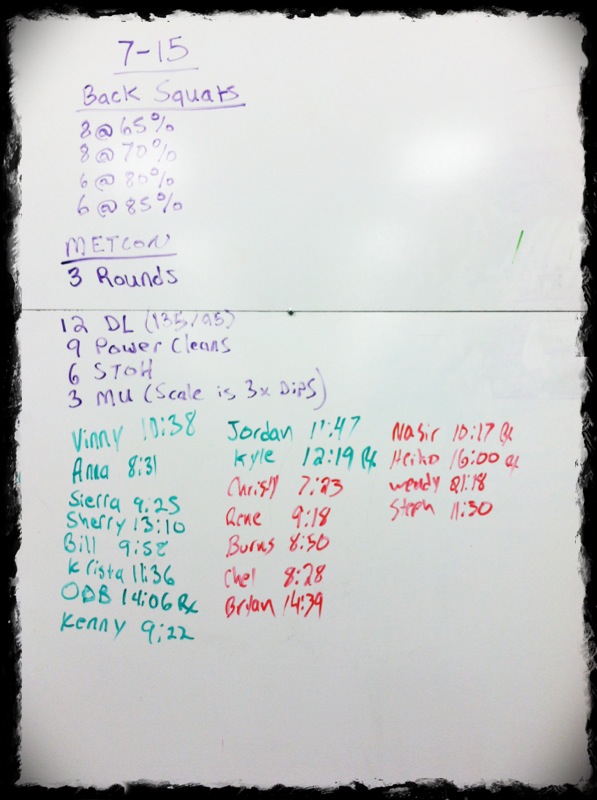 7-15
Back Squats
8@65%
8@70%
6@80%
6@85%
METCON
3 Rounds
12 DL (135/95)
9 Power Cleans
6 STOH
3 MU (Scale is 3x Dips)
Vinny 10:38
Anna 8:31
Sierra 9:25
Sherry 13:10
Bill 9:58
Krista 11:36
ODB 14:06 Rx
Kenny 9:22
Jordan 11:47
Kyle 12:19 Rx
Christy 7:23
Rene 9:18
Burns 8:50
Chel 8:28
Bryan 14:39
Nasir 10:17 Rx
Heiko 16:00 Rx
Wendy 21:18
Steph 11:30